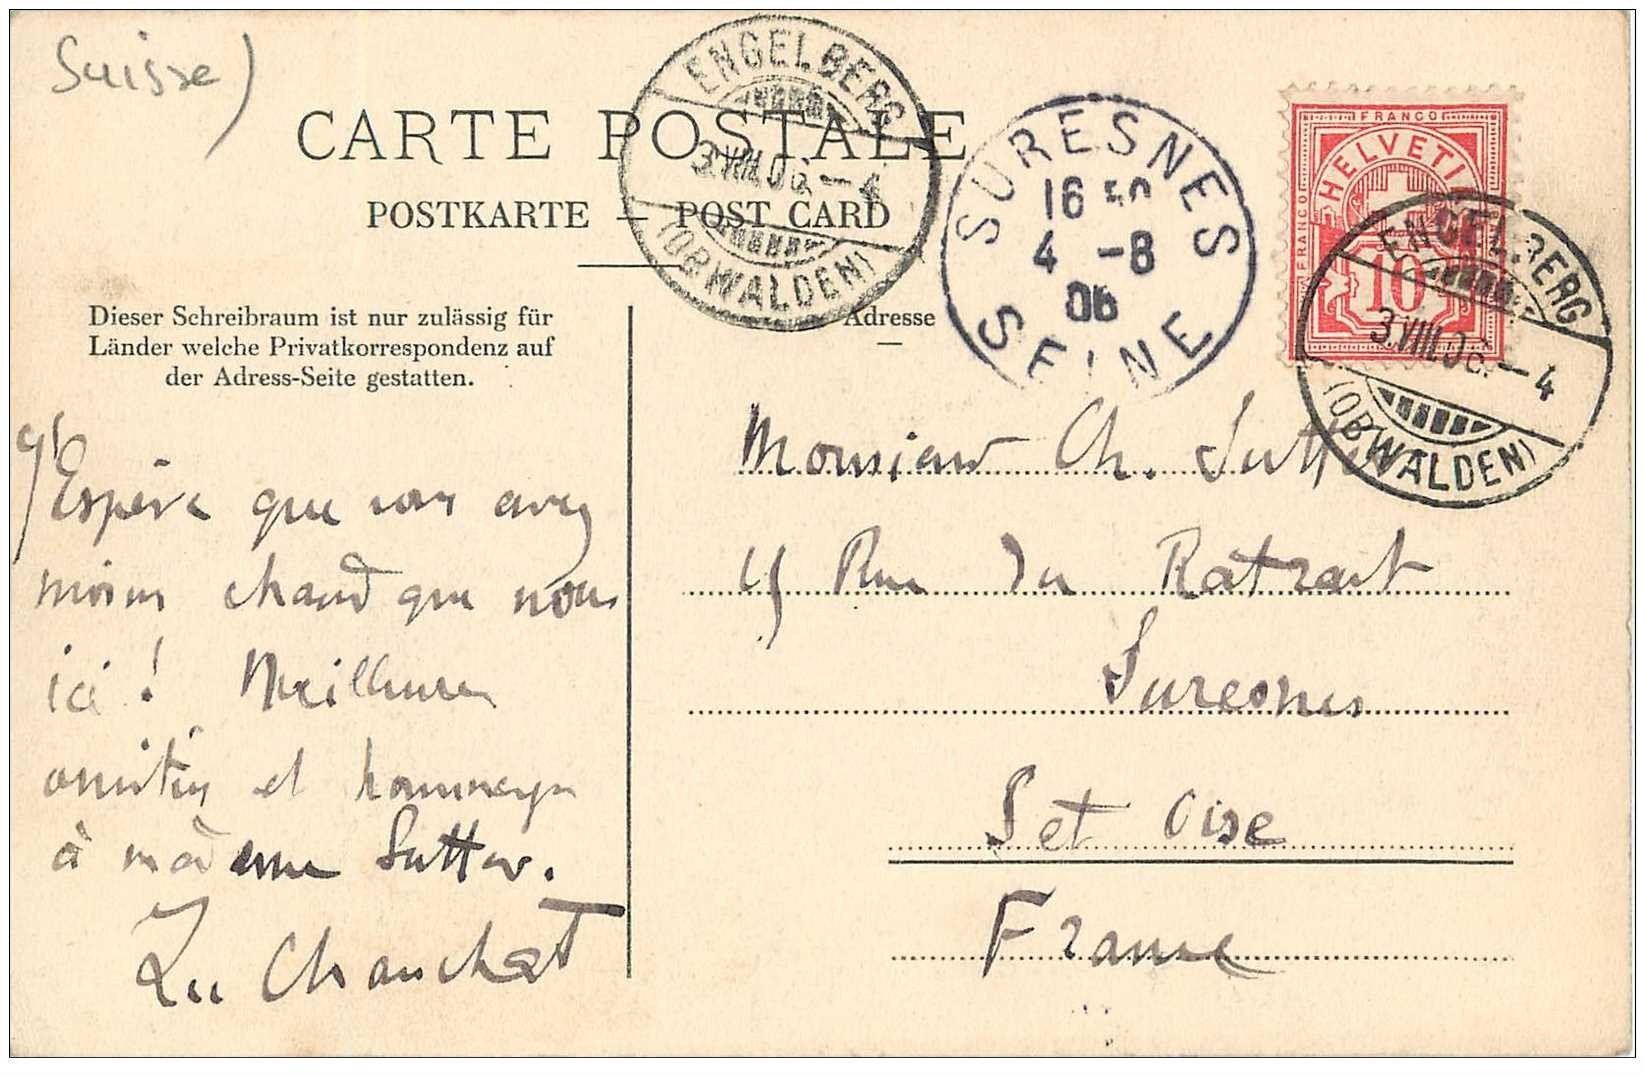 Suisse)
CARTE POSTALE
POSTKARTE — POST CARD
ENGELBERG
3.VIII.06.–4
(OBWALDEN)
SURESNES
16 50
4 -8
06
SEINE
FRANCO
FRANCO
HELVETI
10
ENGELBERG
3.VIII.06.–4
(OBWALDEN)
Dieser Schreibraum ist nur zulässig für
Länder welche Privatkorrespondenz auf
der Adress-Seite gestatten.
Adresse
J'Espère que vous avez
moins chaud que nous
ici ! Meilleures
amitiés et hommages
à madame Sutter.
Chauchat
Monsieur Ch. Sutter
Rue du Ratrait
Suresnes
S et Oise
France